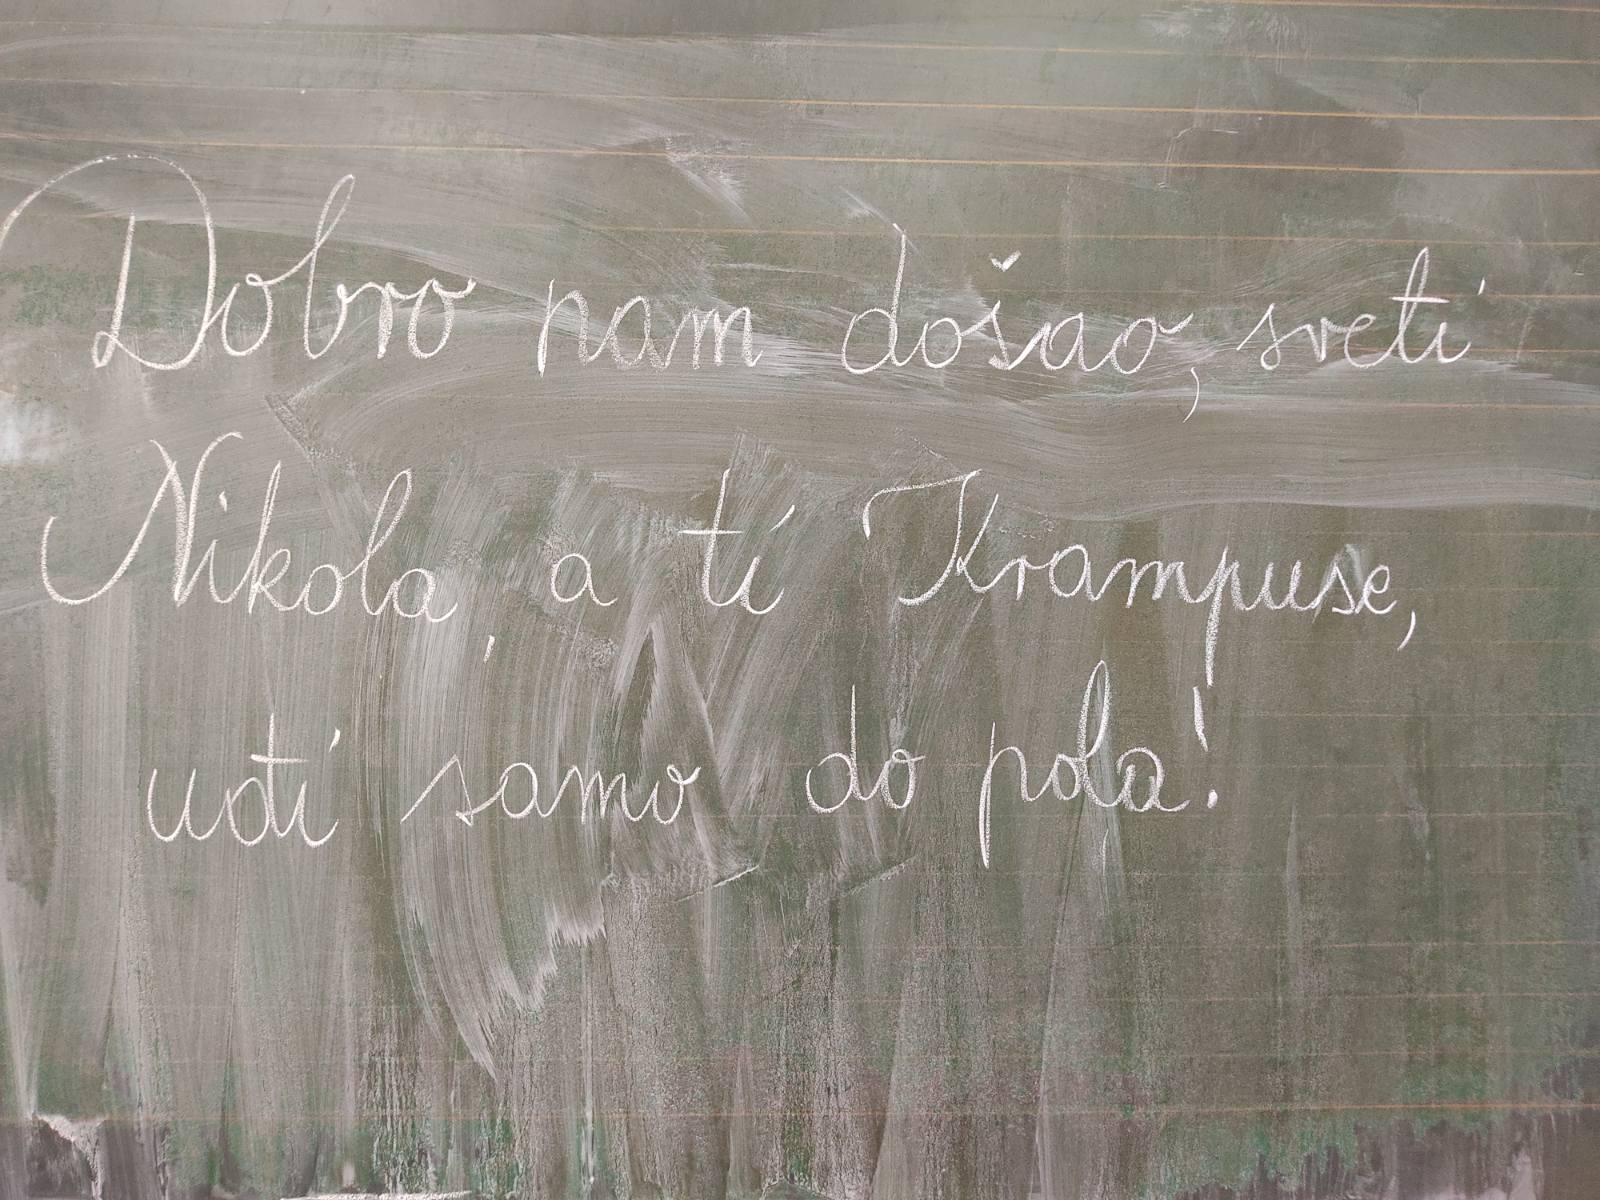 Dobro nam došao, sveti
Nikola, a ti Krampuse,
uđi samo do pola!